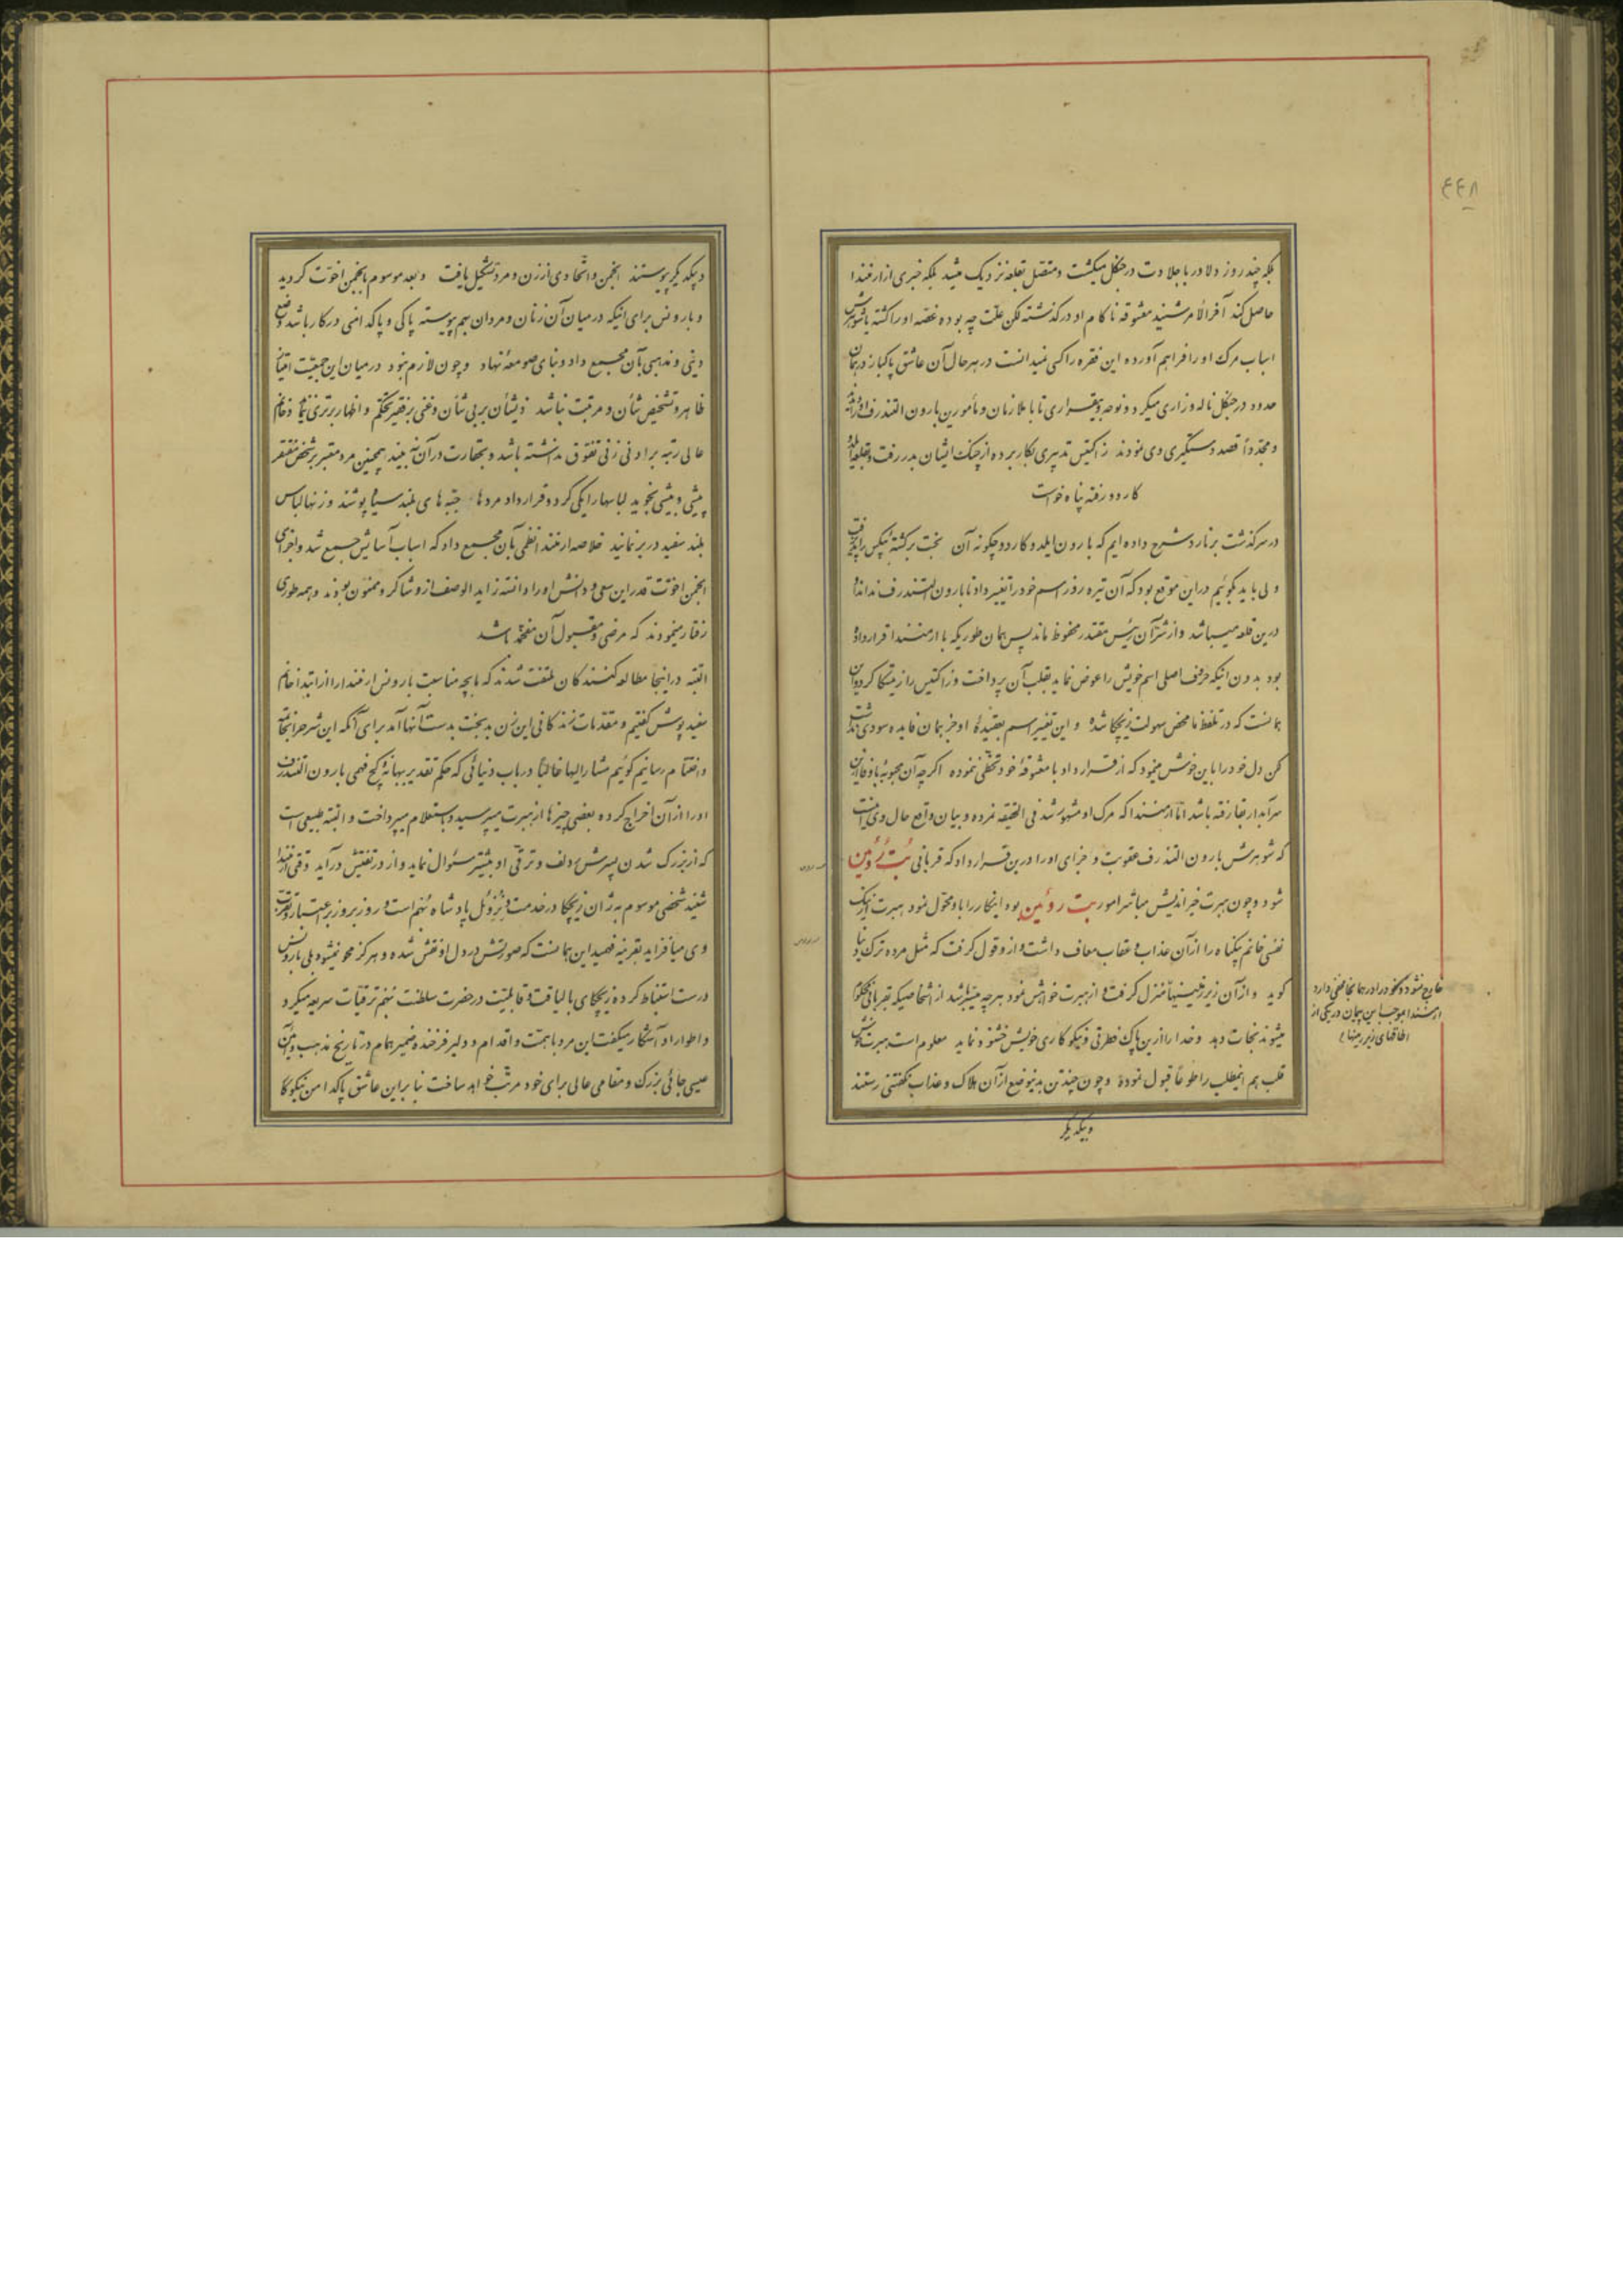 ٤٤٨
بلکه چند روز دلاور با جلادت در جنگل میگشت و متصل بقلعه نزدیک میشد بلکه خبری از ارمندا
حاصل کند آخرالامر شنید معشوقه ناکام او درگذشته لکن علت چه بوده غصه او را کشته یا شوهرش
اسباب مرک او را فراهم آورده این فقره را کسی نمیدانست در هر حال آن عاشق پاکباز در همان
حدود در جنگل ناله و زاری میکرد و نوحه و بیقراری تا با ملازمان و مأمورین بارون التندرف
و مجدداً قصد دستگیری وی نمودند زاکتیس تدبیری بکار برده از چنک ایشان بدر رفت و بقلعه
کاردو رفته پناه خواست
در سرکذشت برنارد شرح داده‌ایم که بارون ایلدو کاردو چکونه آن بخت برکشته بیکس را پذیرفت
ولی باید بکوئیم در این موقع بود که آن تیره روز اسم خود را تغییر داد تا بارون التندرف نداند او
درین قلعه میباشد و از شر آن رئیس مقتدر محفوظ ماند پس همان طوریکه با ارمندا قرار داده
بود بدون اینکه حرف اصلی اسم خویش را عوض نماید بقلب آن پرداخت و زاکتیس را زیتسکا کرد و این
همانست که در تلفظ ما محض سهولت زیچکا شده و این تغییر اسم بعقیدهٔ او جز همان فایده سودی نداشت
لکن دل خود را باین خوش مینمود که از قرارداد با معشوقهٔ خود تخلفی ننموده اگر چه آن محبوبه با وفا ازین
سرا بدار بقا رفته باشد اما ارمندا که مرک او مشهور شد فی الحقیقه نمرده و بیان واقع حال وی اینست
که شوهرش بارون التندرف عقوبت و جزای او را درین قرار داد که قربانی بُت رُوئین
شود و چون هبرت خیراندیش مباشر امور بت روئین بود اینکار را باو محول نمود هبرت نیک
نفس خانم بیکناه را از آن عذاب و عقاب معاف داشت و از و قول کرفت که مثل مرده ترک دنیا
کوید و از آن زیرزمینها منزل کرفت و از هبرت خواهش نمود هر چه میسر باشد از اشخاصیکه بقربانی محکوم
میشوند نجات دهد و خدا را ازین پاک فطرتی و نیکوکاری خویش خشنود نماید معلوم است هبرت خوش
قلب هم اینمطلب را طوعاً قبول نموده و چون چند تن بدینوضع از آن هلاک و عذاب نکفتنی رستند
و بیکدیکر
خارج نشود و خود را در همانجا مخفی دارد
ارمندا بموجب این پیمان در یکی از
اطاقهای زیرزمینها
و بیکدیکر پیوستند انجمن و اتحادی از زن و مرد تشکیل یافت و بعد موسوم بانجمن اخوت کردید
و بارونس برای اینکه در میان آن زنان و مردان بهم پیوسته پاکی و پاکدامنی در کار باشد وضع
دینی و مذهبی بآن مجمع داد و بنای صومعه نهاد و چون لازم نبود در میان این جمعیت امتیاز
ظاهر و تشخیص شأن و مرتبت نباشد ذیشأن بر بی شأن و غنی بر فقیر تحکم و اظهار برتری ننماید و خانم
عالی رتبه بر ادنی زنی تفوق نداشته باشد و بحقارت در آن نه بیند همچنین مرد معتبر بر شخص مفتقر
پیشی و بیشی نجوید لباسها را یکی کرد و قرار داد مردها جبه‌های بلند سیاه پوشند و زنها لباس
بلند سفید در بر نمایند خلاصه ارمندا نظمی بآن مجمع داد که اسباب آسایش جمیع شد و اجزای
انجمن اخوت قدر این سعی و دانش او را دانسته زاید الوصف از و شاکر و ممنون بودند و همه طوری
رفتار مینمودند که مرضی و مقبول آن مفخمه باشد
البته در اینجا مطالعه کنندکان ملتفت شدند که ما بچه مناسبت بارونس ارمندا را از ابتدا خانم
سفید پوش کفتیم و مقدمات زندکانی این زن بدبخت بدست آنها آمد برای آنکه این شرح را بخاتمه
و اختتام رسانیم کوئیم مشار الیها غالباً در باب دنیائی که حکم تقدیر ببهانهٔ کج فهمی بارون التندرف
او را از آن اخراج کرده بعضی چیزها از هبرت میپرسید و باستعلام میپرداخت و البته طبیعی است
که از بزرک شدن پسرش ردلف و ترقی او بیشتر سئوال نماید و از در تفتیش درآید وقتی ارمندا
شنید شخصی موسوم به ژان زیچکا در خدمت ونزوئل پادشاه بُهم است و روز بروز بر اعتبار و تقرب
وی میافزاید بقرینه فهمید این همانست که صورتش در دل او نقش شده و هرکز محو نمیشود بلی بارونس
درست استنباط کرده زیچکای با لیاقت و قابلیت در حضرت سلطنت بُهم ترقیات سریعه میکرد
و اطوار او آشکار میکفت این مرد با همت و اقدام و دلیر فرخنده ضمیر بنام در تاریخ مذهب و آئین
عیسی جائی بزرک و مقامی عالی برای خود مرتب خواهد ساخت بنا بر این عاشق پاکدامن نیکوکار